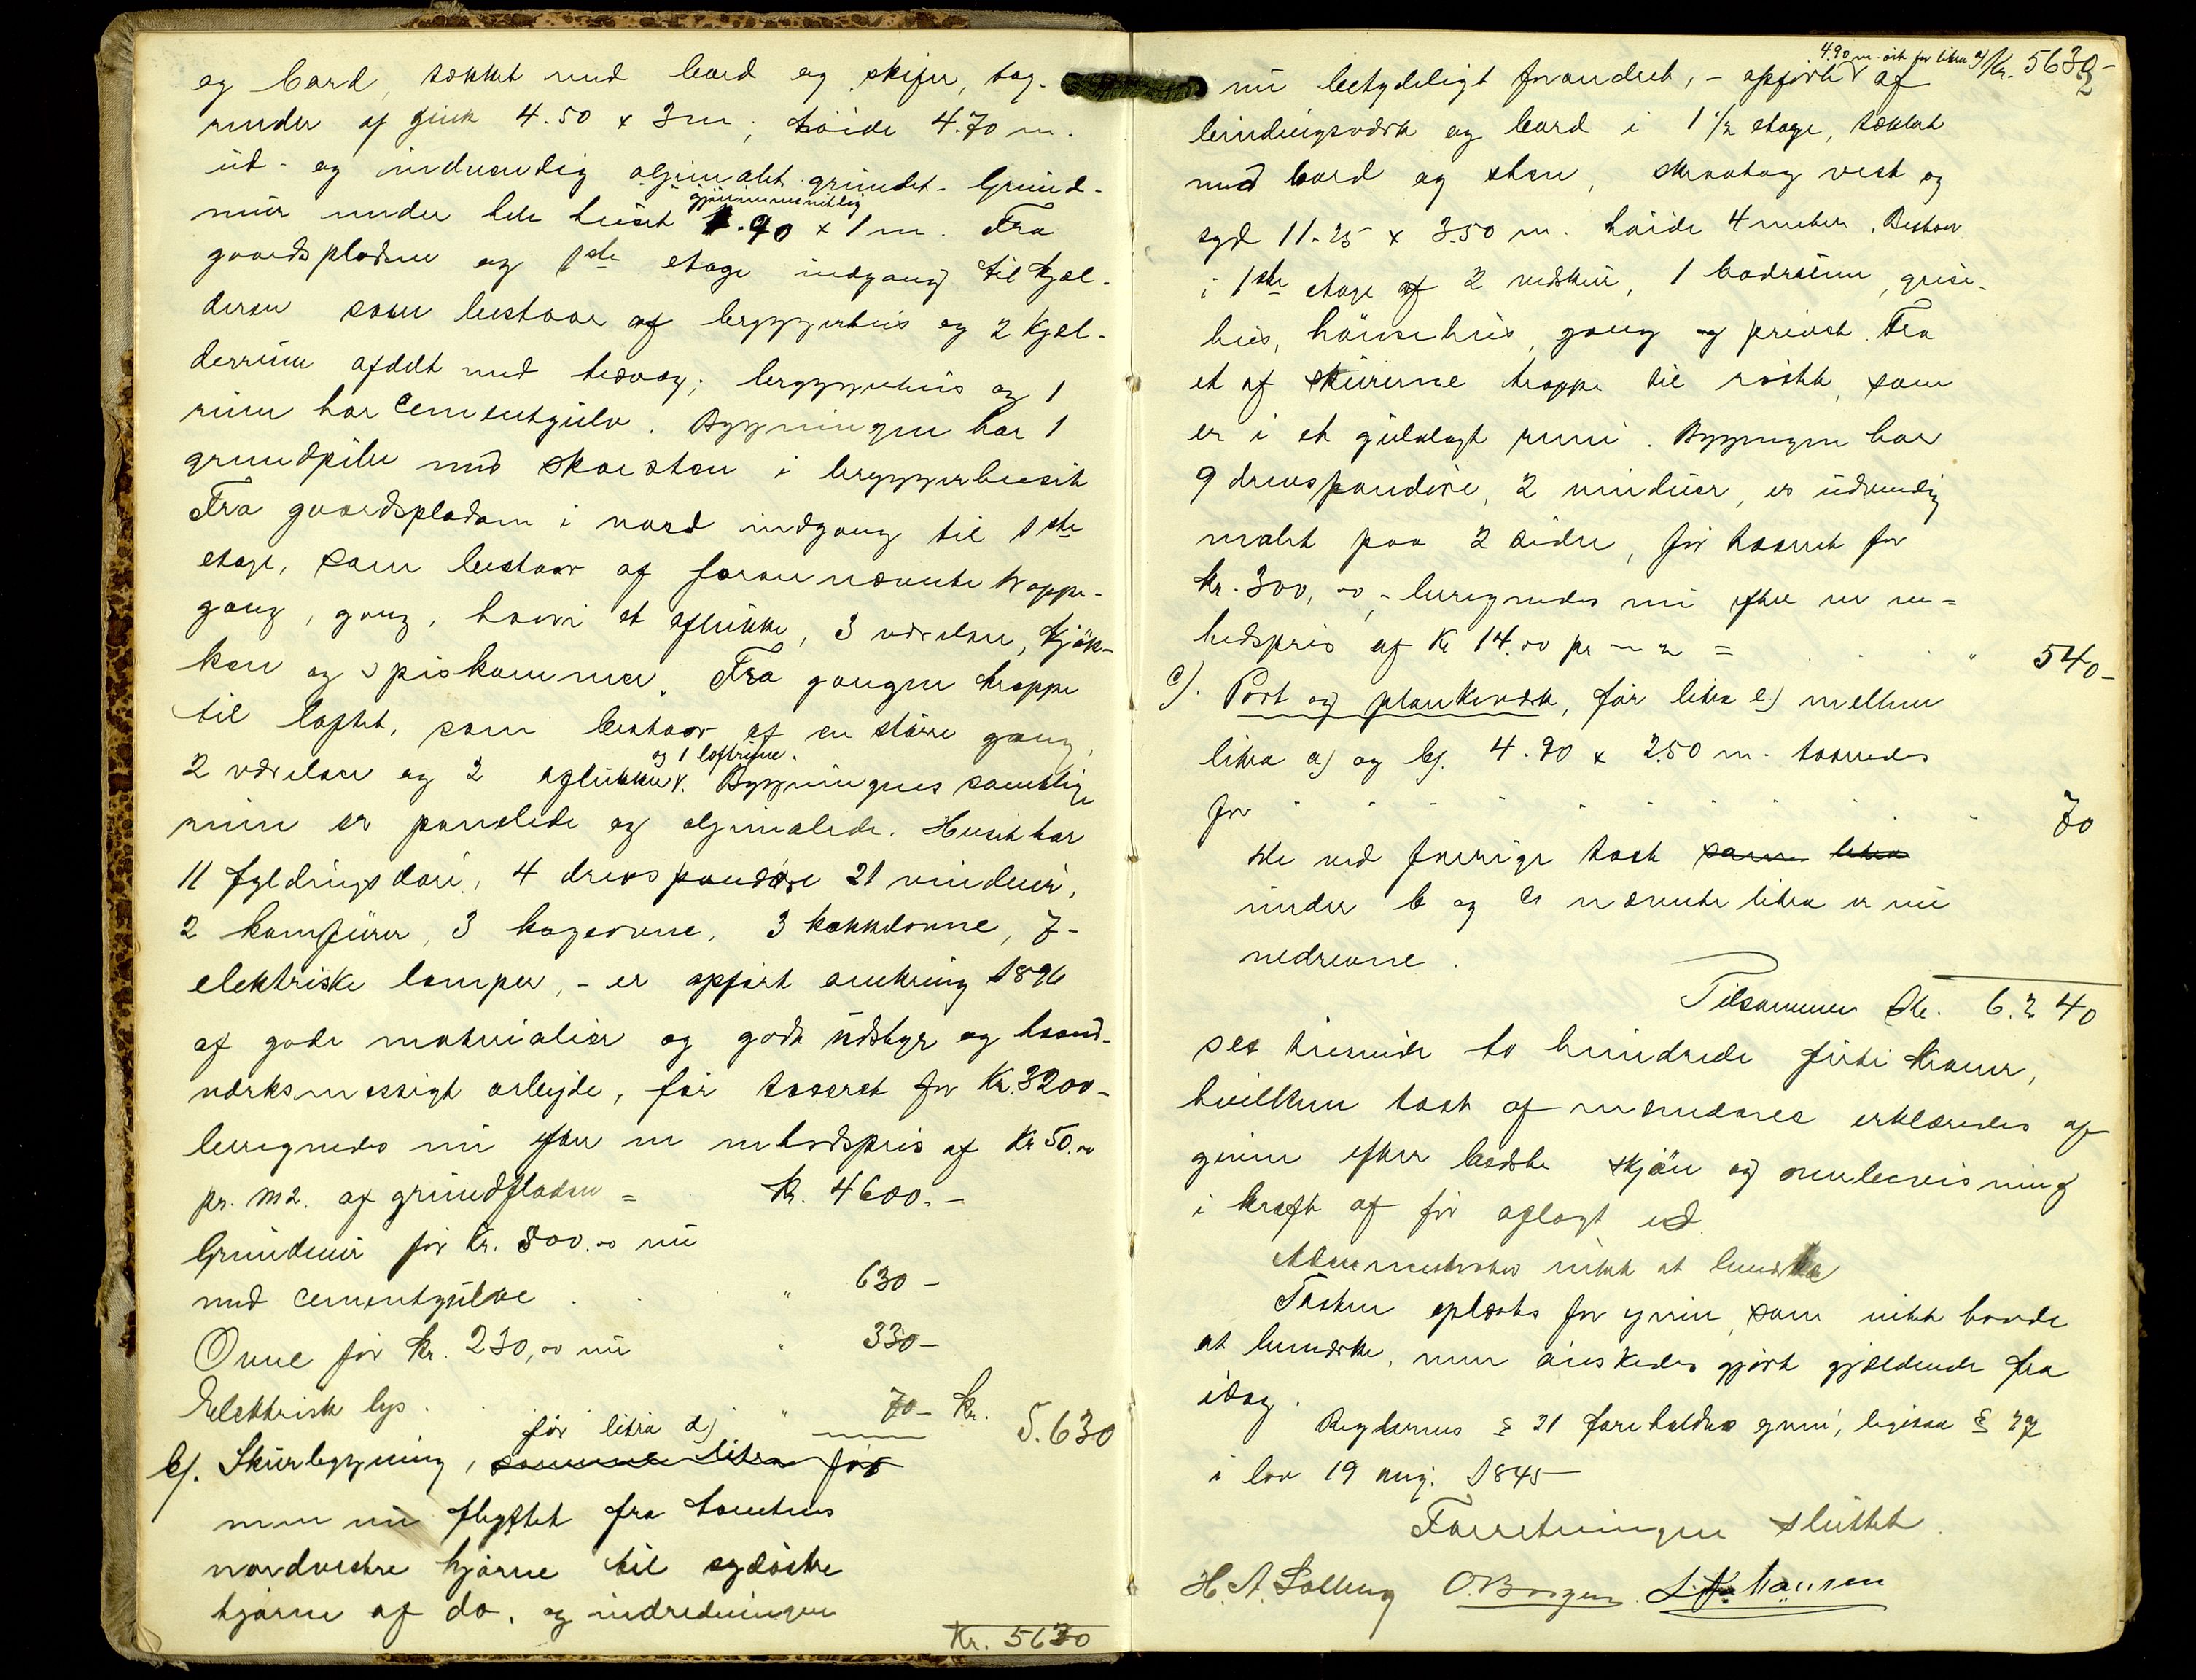 og bord, tækket med bord og skifer, tag-
render af zink 4.50 x 3 m, høide 4.70 m.
ud- og indvendig oljemalet grundet. Grund-
mur under hele huset gjennemsnitlig 1.90 x 1 m. Fra
gaardspladsen og 1ste etage indgang til kjæl-
deren som bestaar af bryggerhus og 2 kjel-
derrum afdelt med trævæg; bryggerhus og 1
rum har cementgulv. Bygningen har 1
grundpibe med skorsten i bryggerhuset
Fra gaardspladsen i nord indgang til 1ste
etage, som bestaar af forannævnte trappe-
gang, gang, hvori et aflukke, 3 værelser, kjøk-
ken og spiskammer. Fra gangen trappe
til loftet, som bestaar af en større gang,
2 værelser og 2 aflukker og 1 loftrum. Bygningens samtlige
rum er panelede og oljemalede. Huset har
11 fyldingsdøre, 4 drevspandøre 21 vinduer,
2 komfurer, 3 kogeovne, 3 kakkelovne, 7-
elektriske lamper, - er opført omkring 1896
af gode materialier og godt udstyr og haand-
værksmessigt arbejde, før taxeret for Kr. 3200-
beregnedes nu efter en enhedspris af Kr 50.00
pr. m2. af grundfladen = Kr. 4600.-
Grundmur før Kr. 300.00 nu
med cementgulve . . " 630-
Ovne før Kr. 230,00 nu " 330-
Elektrisk lys . . " 70- Kr. 5.630
b). Skurbygning, samme litra før før litra d)
men nu flyttet fra tomtens
nordvestre hjørne til sydøstre
hjørne af do. og indredningen
Kr. 5630
Kr. 5630-
nu betydeligt forandret, - opført 4.90 m. øst for litra a) af
bindingsværk og bord i 1 1/2 etage, tækket
med bord og sten, skraatag vest og
syd 11.25 x 3.50 m. høide 4 meter. Bestaar
i 1ste etage af 2 vedskur, 1 bodrum, grise-
hus, hønsehus, gang og privet. Fra
et af skurerne trappe til røstet, som
er i et gulvlagt rum. Bygningen har
9 drevspandøre, 2 vinduer, er udvendig
malet paa 2 sider, før taxeret for
Kr. 300,00, - beregnedes nu efter en en=
hedspris af Kr 14.00 pr m 2 = . . " 540-
c). Port og plankeværk, før litra e) mellem
litra a) og b). 4.90 x 2.50 m. taxeredes
for - - - - - - - " 70
De ved forrige taxt som litra
under b og c nævnte litra er nu
nedrevne.
Tilsammen Kr. 6.240
sex tusinde to hundrede førti kroner,
hvilken taxt af mændene erklæredes af-
given efter bedste skjøn og overbevisning
i kraft af før aflagt ed.
Administrator intet at bemærke
Taxten oplæstes for eieren, som intet havde
at bemærke, men ønskedes gjort gjældende fra
idag.
Reglernes § 21 foreholdtes eieren, ligesaa § 27
i lov 19 aug. 1845-
Forretningen sluttet.
H. A. Solberg O. Borgen. L. Johansen